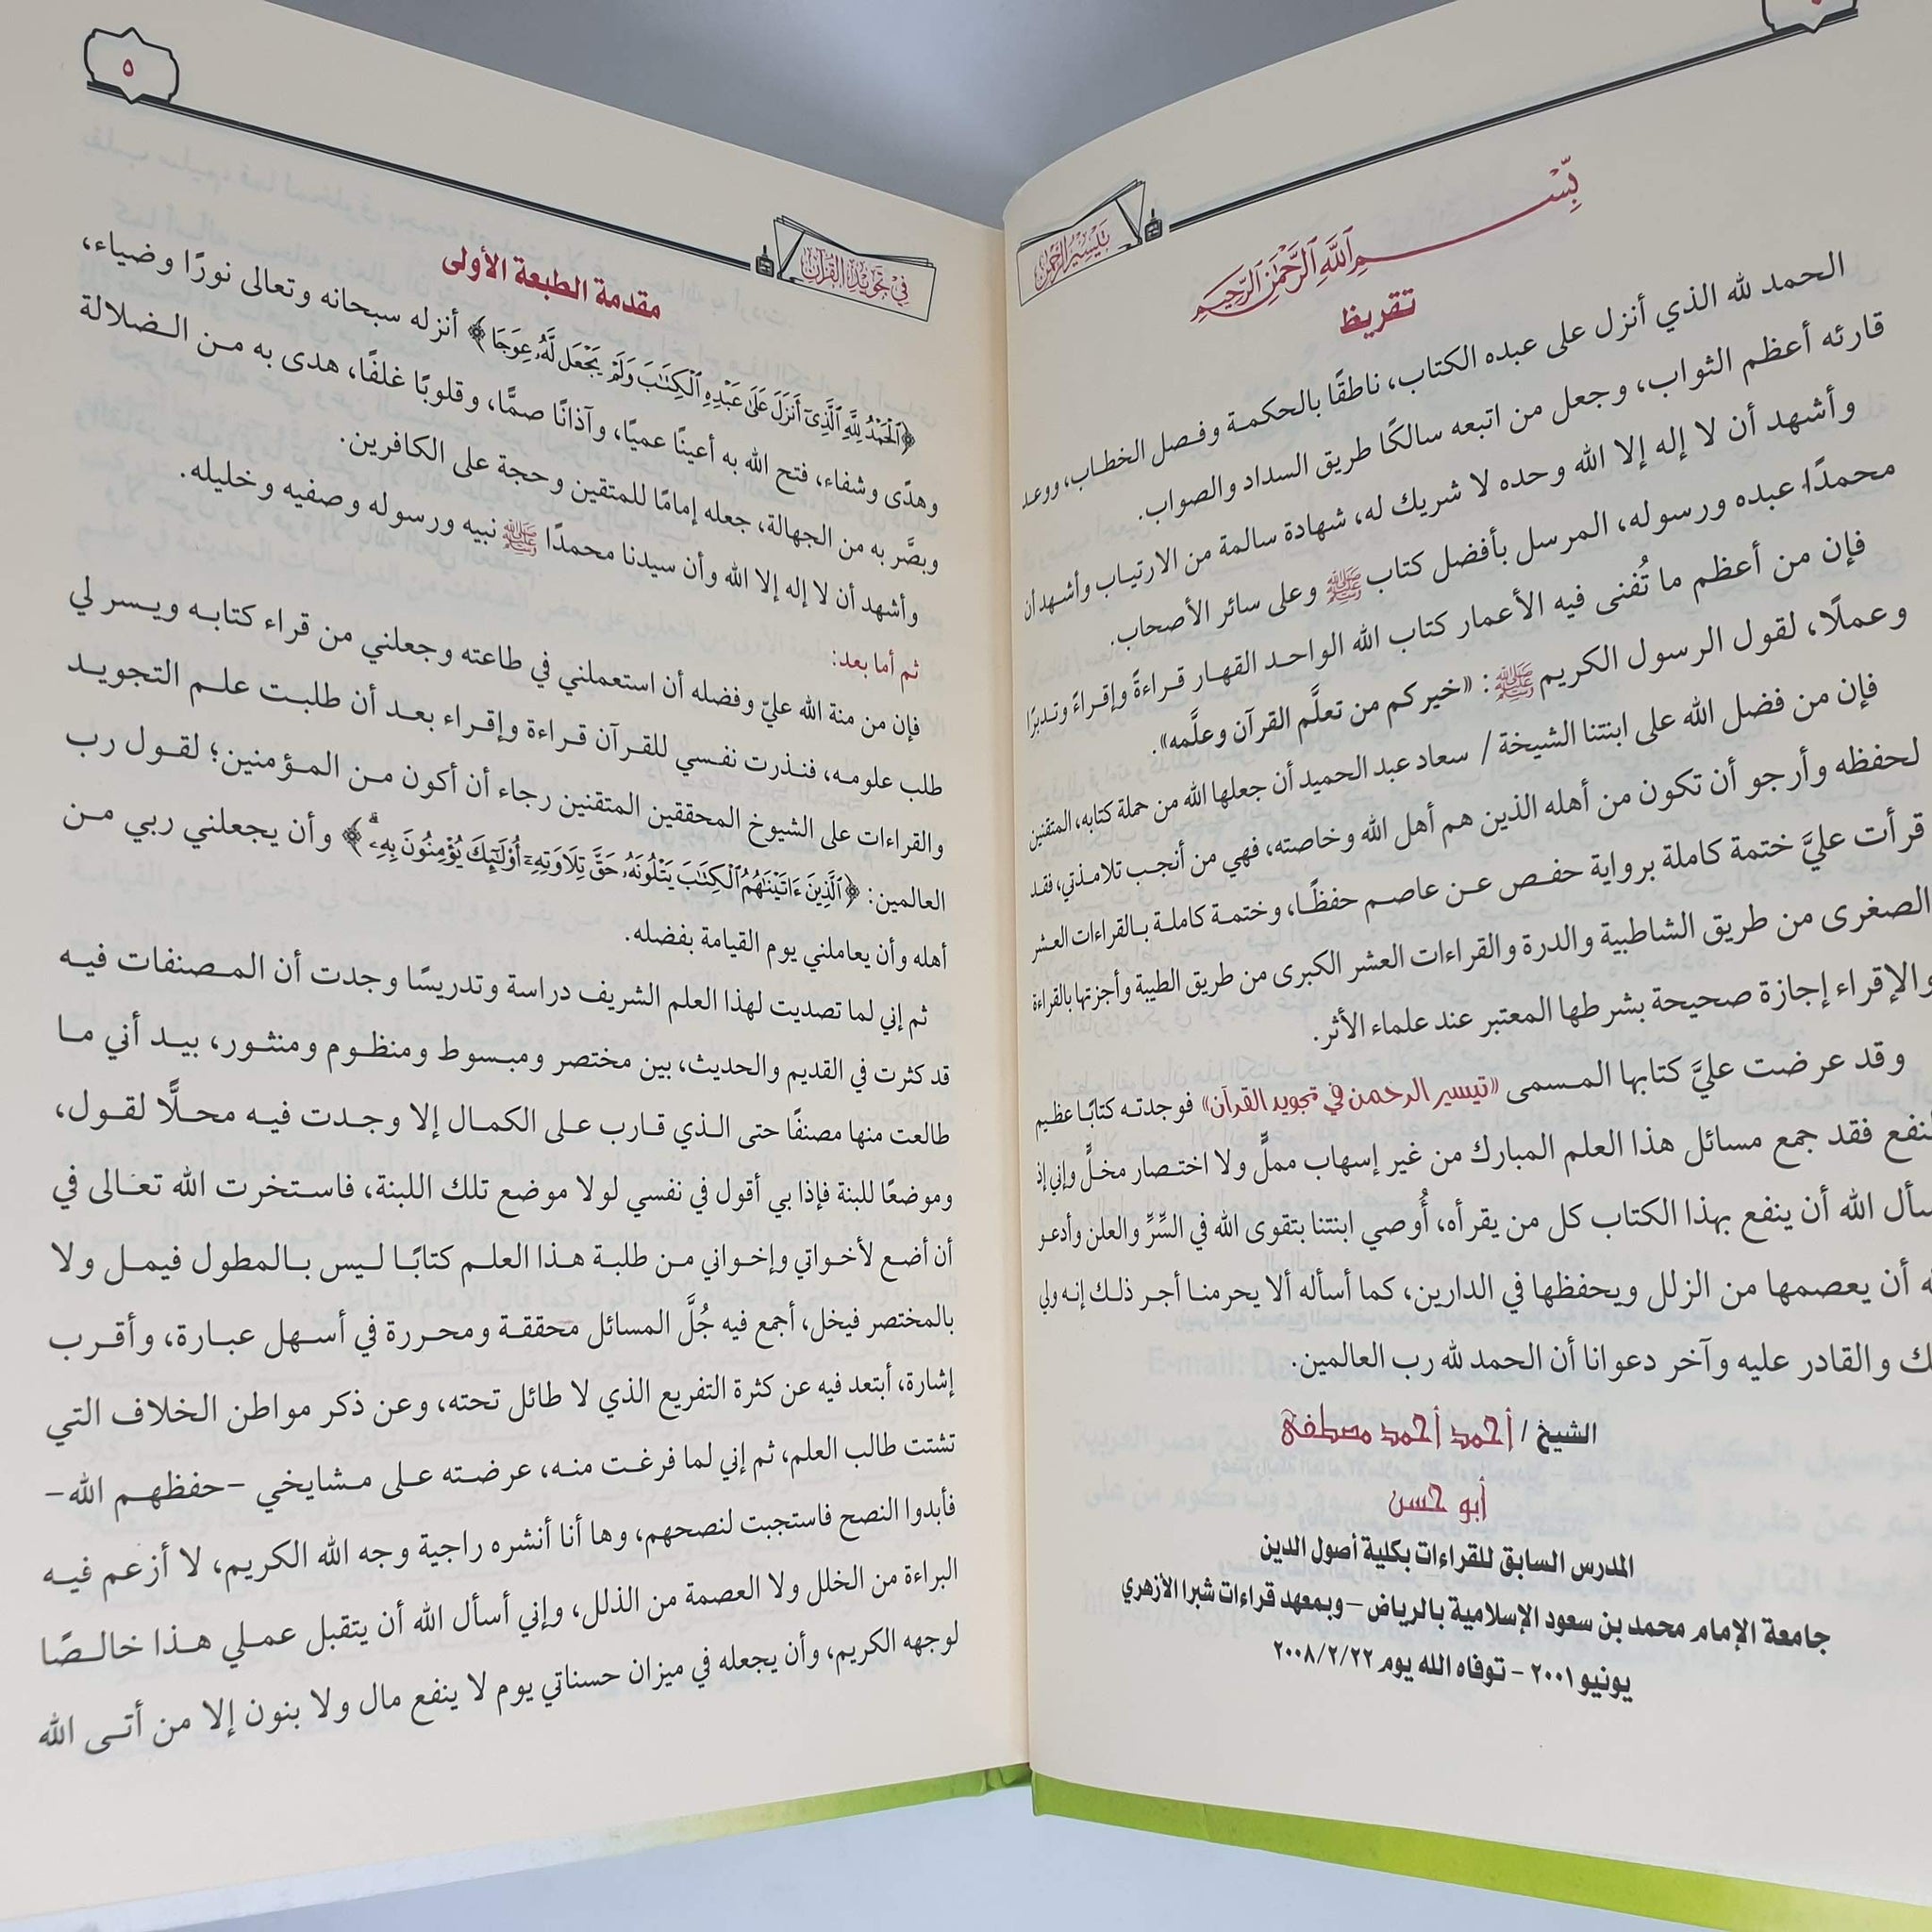 تيسير الرحمن
بِسْمِ ٱللَّهِ ٱلرَّحْمَٰنِ ٱلرَّحِيمِ
تقريظ
الحمد لله الذي أنزل على عبده الكتاب، ناطقًا بالحكمة وفصل الخطاب، ووعد
قارئه أعظم الثواب، وجعل من اتبعه سالكًا طريق السداد والصواب.
وأشهد أن لا إله إلا الله وحده لا شريك له، شهادة سالمة من الارتياب وأشهد أن
محمدًا عبده ورسوله، المرسل بأفضل كتاب ﷺ وعلى سائر الأصحاب.
فإن من أعظم ما تُفنى فيه الأعمار كتاب الله الواحد القهار قراءةً وإقراءً وتدبرًا
وعملًا، لقول الرسول الكريم ﷺ: «خيركم من تعلَّم القرآن وعلَّمه».
فإن من فضل الله على ابنتنا الشيخة/ سعاد عبد الحميد أن جعلها الله من حملة كتابه، المتقنين
لحفظه وأرجو أن تكون من أهله الذين هم أهل الله وخاصته، فهي من أنجب تلامذتي، فقد
قرأت عليَّ ختمة كاملة برواية حفص عن عاصم حفظًا، وختمة كاملة بالقراءات العشر
الصغرى من طريق الشاطبية والدرة والقراءات العشر الكبرى من طريق الطيبة وأجزتها بالقراءة
والإقراء إجازة صحيحة بشرطها المعتبر عند علماء الأثر.
وقد عرضت عليَّ كتابها المسمى «تيسير الرحمن في تجويد القرآن» فوجدته كتابًا عظيم
النفع فقد جمع مسائل هذا العلم المبارك من غير إسهاب مملٍّ ولا اختصار مخلٍّ وإني إذ
أسأل الله أن ينفع بهذا الكتاب كل من يقرأه، أُوصي ابنتنا بتقوى الله في السِّرِّ والعلن وأدعو
أن يعصمها من الزلل ويحفظها في الدارين، كما أسأله ألا يحرمنا أجر ذلك إنه ولي
والقادر عليه وآخر دعوانا أن الحمد لله رب العالمين.
الشيخ / أحمد أحمد مصطفى
أبو حسن
المدرس السابق للقراءات بكلية أصول الدين
جامعة الإمام محمد بن سعود الإسلامية بالرياض – وبمعهد قراءات شبرا الأزهري
يونيو ٢٠٠١ - توفاه الله يوم ٢٠٠٨/٢/٢٢
٥
في تجويد القرآن
مقدمة الطبعة الأولى
﴿ٱلْحَمْدُ لِلَّهِ ٱلَّذِىٓ أَنزَلَ عَلَىٰ عَبْدِهِ ٱلْكِتَٰبَ وَلَمْ يَجْعَل لَّهُۥ عِوَجَا﴾ أنزله سبحانه وتعالى نورًا وضياء،
وهدًى وشفاء، فتح الله به أعينًا عميًا، وآذانًا صمًّا، وقلوبًا غلفًا، هدى به من الضلالة
وبصَّر به من الجهالة، جعله إمامًا للمتقين وحجة على الكافرين.
وأشهد أن لا إله إلا الله وأن سيدنا محمدًا ﷺ نبيه ورسوله وصفيه وخليله.
ثم أما بعد:
فإن من منة الله عليّ وفضله أن استعملني في طاعته وجعلني من قراء كتابه ويسر لي
طلب علومه، فنذرت نفسي للقرآن قراءة وإقراء بعد أن طلبت علم التجويد
والقراءات على الشيوخ المحققين المتقنين رجاء أن أكون من المؤمنين؛ لقول رب
العالمين: ﴿ٱلَّذِينَ ءَاتَيْنَٰهُمُ ٱلْكِتَٰبَ يَتْلُونَهُۥ حَقَّ تِلَاوَتِهِۦٓ أُو۟لَٰٓئِكَ يُؤْمِنُونَ بِهِۦۗ﴾ وأن يجعلني ربي من
أهله وأن يعاملني يوم القيامة بفضله.
ثم إني لما تصديت لهذا العلم الشريف دراسة وتدريسًا وجدت أن المصنفات فيه
قد كثرت في القديم والحديث، بين مختصر ومبسوط ومنظوم ومنثور، بيد أني ما
طالعت منها مصنفًا حتى الذي قارب على الكمال إلا وجدت فيه محلًّا لقول،
وموضعًا للبنة فإذا بي أقول في نفسي لولا موضع تلك اللبنة، فاستخرت الله تعالى في
أن أضع لأخواتي وإخواني من طلبة هذا العلم كتابًا ليس بالمطول فيمل ولا
بالمختصر فيخل، أجمع فيه جُلَّ المسائل محققة ومحررة في أسهل عبارة، وأقرب
إشارة، أبتعد فيه عن كثرة التفريع الذي لا طائل تحته، وعن ذكر مواطن الخلاف التي
تشتت طالب العلم، ثم إني لما فرغت منه، عرضته على مشايخي -حفظهم الله-
فأبدوا النصح فاستجبت لنصحهم، وها أنا أنشره راجية وجه الله الكريم، لا أزعم فيه
البراءة من الخلل ولا العصمة من الذلل، وإني أسأل الله أن يتقبل عملي هذا خالصًا
لوجهه الكريم، وأن يجعله في ميزان حسناتي يوم لا ينفع مال ولا بنون إلا من أتى الله